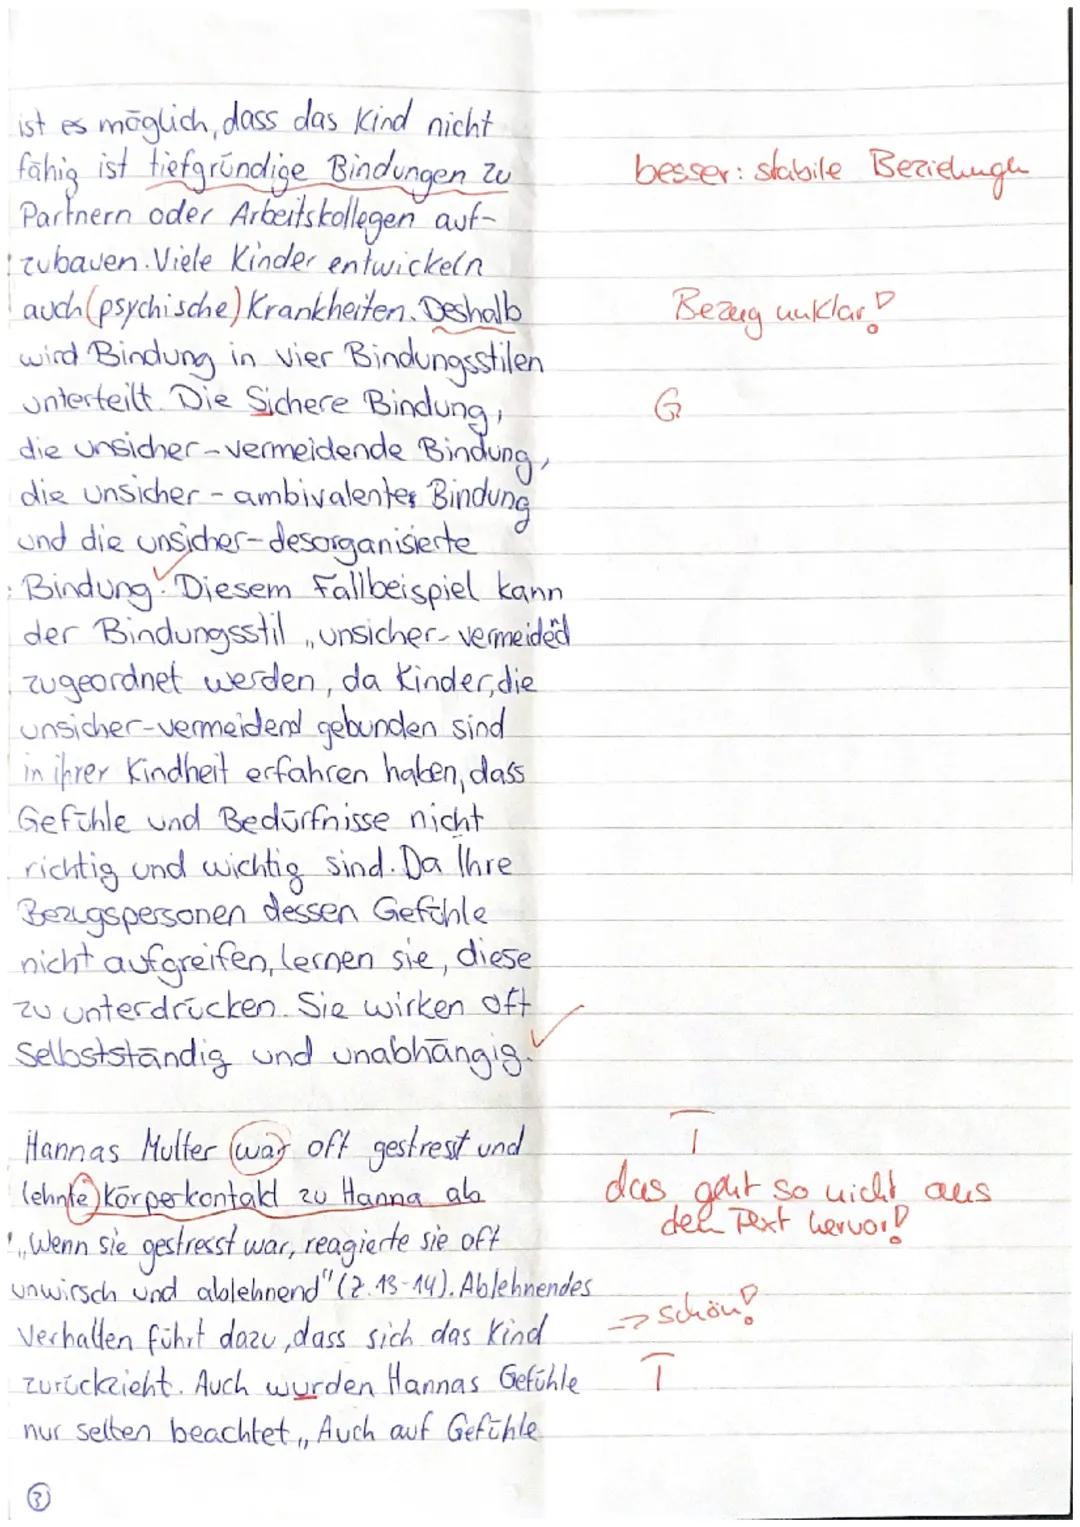 ist es möglich, dass das Kind nicht
fähig ist tiefgründige Bindungen zu
besser: stabile Beziehungen
Partnern oder Arbeitskollegen auf-
zubauen. Viele Kinder entwickeln
auch (psychische) Krankheiten. Deshalb
Bezug unklar!
wird Bindung in vier Bindungsstilen
unterteilt. Die Sichere Bindung,
G
die unsicher-vermeidende Bindung,
die unsicher-ambivalente Bindung
und die unsicher-desorganisierte
Bindung. Diesem Fallbeispiel kann
der Bindungsstil „unsicher-vermeidend
zugeordnet werden, da Kinder, die
unsicher-vermeidend gebunden sind
in ihrer Kindheit erfahren haben, dass
Gefühle und Bedürfnisse nicht
richtig und wichtig sind. Da Ihre
Bezugspersonen dessen Gefühle
nicht aufgreifen, lernen sie, diese
zu unterdrücken. Sie wirken oft
Selbstständig und unabhängig.
Hannas Mutter war oft gestresst und
T
lehnte Körperkontakt zu Hanna ab
das geht so nicht aus
dem Text hervor!
„Wenn sie gestresst war, reagierte sie oft
unwirsch und ablehnend" (Z. 13-14). Ablehnendes
Verhalten führt dazu, dass sich das Kind
=> schön!
zurückzieht. Auch wurden Hannas Gefühle
T
nur selten beachtet „Auch auf Gefühle
3